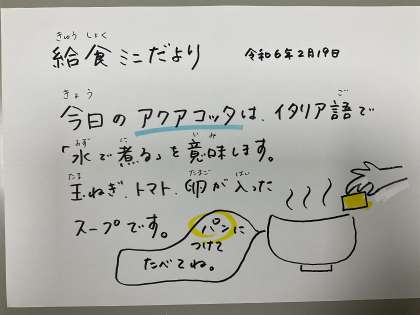 きゅうしょく
給食ミニだより 令和6年2月19日
きょう ご
今日のアクアコッタは、イタリア語で
みず に いみ
「水で煮る」を意味します。
たま たまご はい
玉ねぎ、トマト、卵が入った
スープです。
パンに
つけて
たべてね。